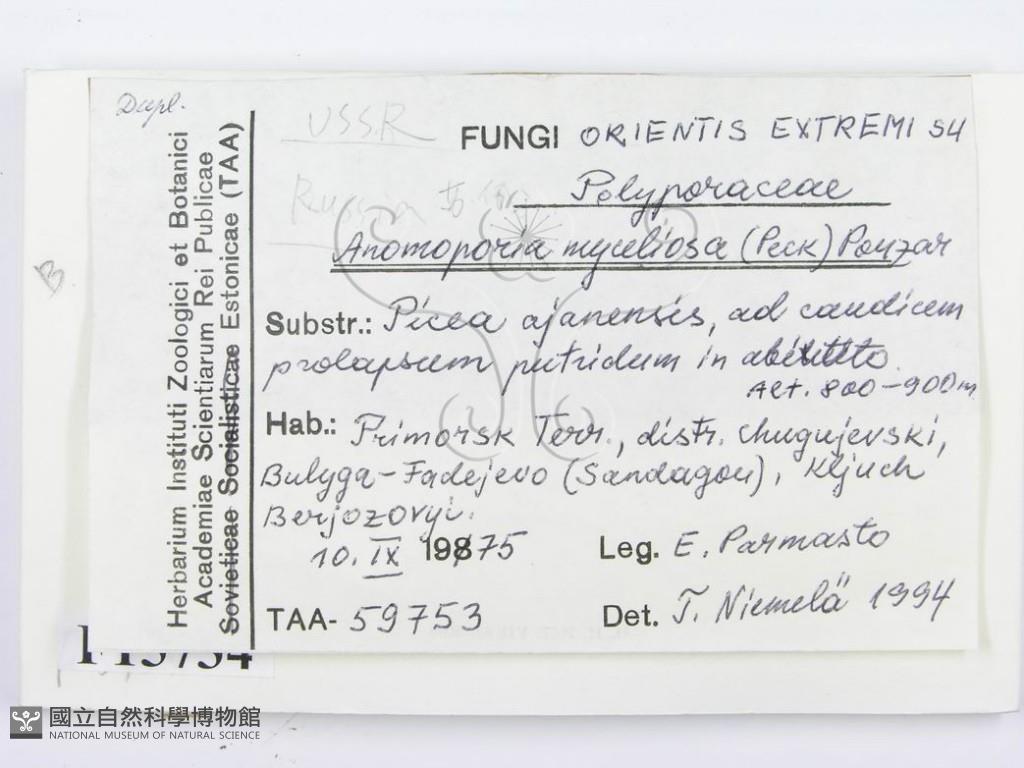 Dupl.
Herbarium Instituti Zoologici et Botanici
Academiae Scientiarum Rei Publicae
Sovieticae Socialisticae Estonicae (TAA)
USSR
FUNGI ORIENTIS EXTREMI SU
Russia
Polyporaceae
Anomoporia myceliosa (Peck) Pouzar
B
Substr.: Picea ajanensis, ad caudicem
prolapsum putridum in abieto.
Alt. 800-900 m
Hab.: Primorsk Terr., distr. Chugujevski,
Bulyga-Fadejevo (Sandagou), Kljuch
Berjozovyi.
10. IX 1975
Leg. E. Parmasto
TAA- 59753
Det. T. Niemelä 1994
國立自然科學博物館
NATIONAL MUSEUM OF NATURAL SCIENCE